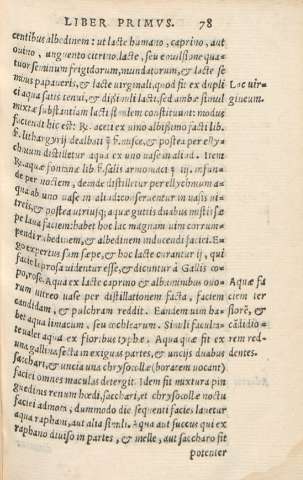 LIBER PRIMVS. 78
centibus albedinem: ut lacte humano, caprino, aut
ouino, unguento citrino, lacte, seu emulsione qua-
tuor seminum frigidorum, mundatorum, & lacte se
minis papaueris, & lacte uirginali, quod fit ex dupli
Lac uir-
gineum.
ci aqua satis tenui, & dissimili lacti, sed ambæ simul
mixtæ substantiam lacti similem constituunt: modus
faciendi hic est: R. aceti ex uino albissimo facti lib.
lithargyrij dealbati & postea per elly-
chnum distilletur aqua ex uno uase in aliud. Item
R. aquæ fontanæ lib salis armoniaci infun-
de per noctem, deinde distilletur per ellychnum a-
qua ab uno uase in aliud: conseruentur in uasis ui-
treis, & postea utriusq; aquæ guttis duabus mistis sæ
pe laua faciem: habet hoc lac magnam uim corrum-
pendi rubedinem, & albedinem inducendi faciei. E-
go expertus sum sæpe, & hoc lacte curantur ij, qui
facie leprosa uidentur esse, & dicuntur à Gallis co-
po, rose. Aqua ex lacte caprino & albuminibus ouo-
Aquæ fa
ciem ter
siorē, &
cādidio-
rem red-
dentes.
rum uitreo uase per distillationem facta, faciem
candidam, & pulchram reddit. Eandem uim ha-
bet aqua limacum, seu cochlearum. Simili facul-
te ualet aqua ex floribus typhæ. Aqua quæ fit ex
una gallina secta in exiguas partes, & uncijs duabus
sacchari, & uncia una chrysocollæ (boracem uocant)
faciei omnes maculas detergit. Idem fit mixtura pin
guedinis renum hœdi, sacchari, et chrysocollæ noctu
faciei admota, dummodo die sequenti facies lauetur
aqua raphani, aut alia simili. Aqua aut succus qui ex
raphano diuiso in partes, & melle, aut saccharo fit
potenter